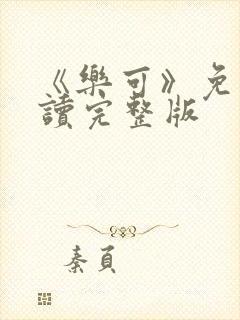 《樂可》免
讀完整版
秦頁